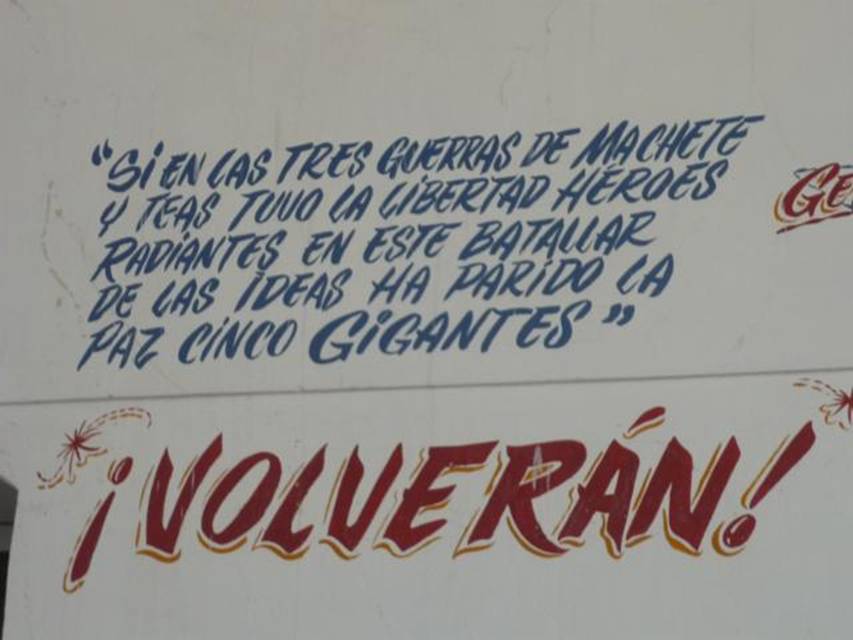 "SI EN LAS TRES GUERRAS DE MACHETE
Y TEAS TUVO LA LIBERTAD HÉROES
RADIANTES EN ESTE BATALLAR
DE LAS IDEAS HA PARIDO LA
PAZ CINCO GIGANTES"
GE
¡VOLVERÁN!